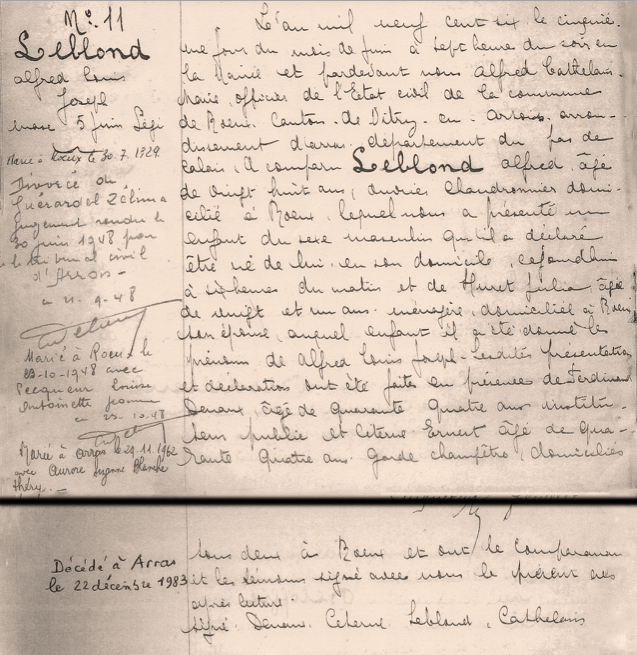 No. 11
Leblond
alfred Louis
Joseph
Marié à Roeux le 30.7.1929.
Divorcé de
Guérardel Zélima
jugement rendu le
30 juin 1948 par
le tribunal civil
d'Arras -
21-9-48
Marié à Roeux le
23-10-1948 avec
Louise
Antoinette Jeanne
23.10.48
Marié à Arras le 29.11.1962
avec Aurore Suzanne Blanche
théry. -
L'an mil neuf cent six le cinquiè-
me jour du mois de juin à sept heures du soir en
la Mairie et pardevant nous Alfred Cathelain
Maire, officier de l'Etat civil de la commune
de Roeux. Canton de Vitry-en-Artois, arron-
dissement d'arras, département du Pas de
Calais, A comparu Leblond alfred, âgé
de vingt huit ans, ouvrier chaudronnier domi-
cilié à Roeux, lequel nous a présenté un
enfant du sexe masculin qu'il a déclaré
être né de lui, en son domicile, cejourd'hui
à six heures du matin et de Huret Julia, âgée
de vingt et un ans, ménagère, domiciliée à Roeux
son épouse, auquel enfant il a été donné les
prénoms de Alfred Louis Joseph - Lesdites présentation
et déclaration ont été faites en présence de Ferdinand
Denaux, âgé de quarante quatre ans institu-
teur public et Citerne Ernest âgé de qua-
rante quatre ans garde champêtre, domiciliés
Décédé à Arras
le 22 décembre 1983
tous deux à Roeux et ont le Comparant
et les témoins signé avec nous le présent acte
après lecture.
Signé: Denaux. Citerne. Leblond. Cathelain